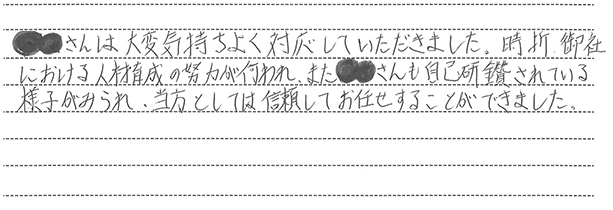 さんは大変気持ちよく対応していただきました。時折、御社
における人材育成の努力が伺われ、またさんも自己研鑽されている
様子がみうれ、当方としては信頼してお任せすることができました。